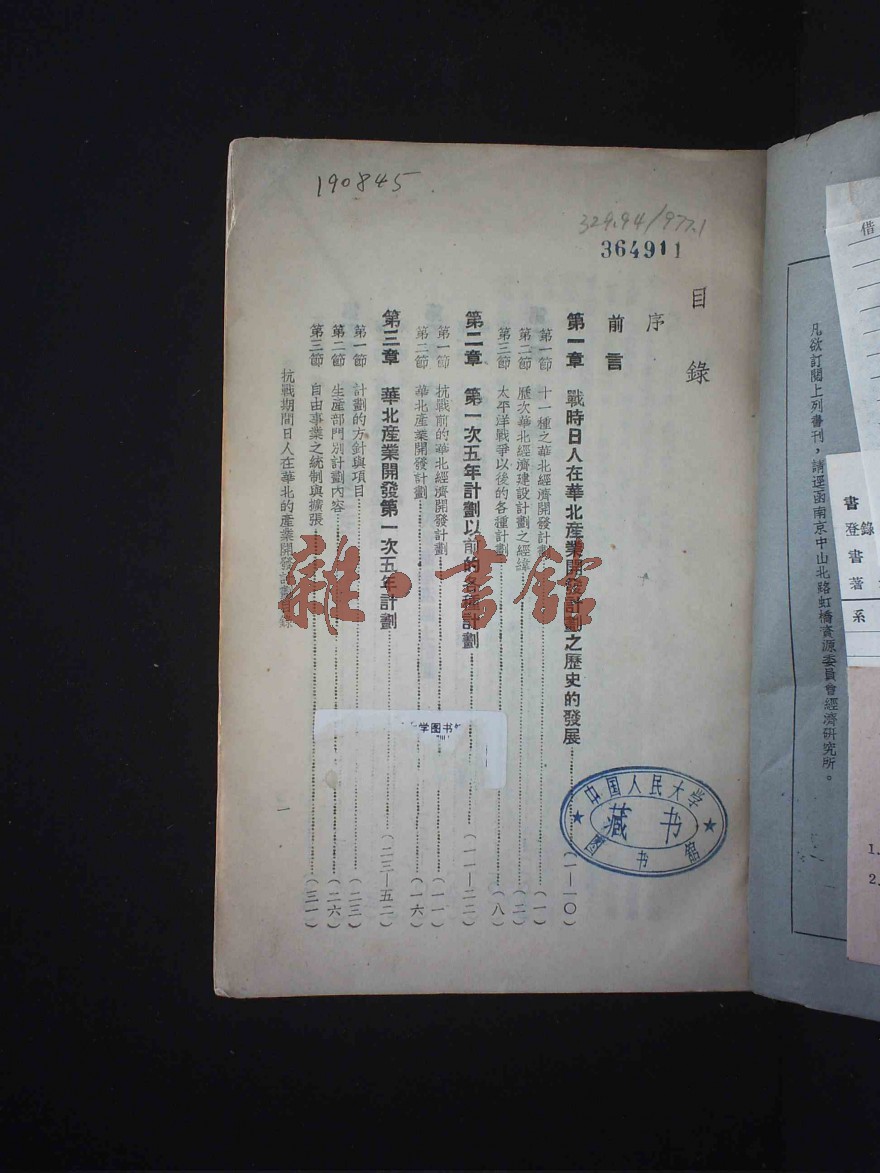 190845
329.94/977.1
364911
目錄
序
前言
第一章 戰時日人在華北產業開發計劃之歷史的發展……(一—一〇)
第一節 十一種之華北經濟開發計劃……(一)
第二節 歷次華北經濟建設計劃之經緯……(二)
第三節 太平洋戰爭以後的各種計劃……(八)
第二章 第一次五年計劃以前的各種計劃……(一一—二二)
第一節 抗戰前的華北經濟開發計劃……(一一)
第二節 華北產業開發計劃……(一六)
第三章 華北產業開發第一次五年計劃……(二三—五二)
第一節 計劃的方針與項目……(二三)
第二節 生產部門別計劃內容……(二六)
第三節 自由事業之統制與擴張……(三一)
抗戰期間日人在華北的產業開發計劃目錄
一
雜·書館
学图书馆
中国人民大学
藏书
图书馆
凡欲訂閱上列書刊,請逕函南京中山北路虹橋資源委員會經濟研究所。
借
書
登錄
書
著
系
1.
2.